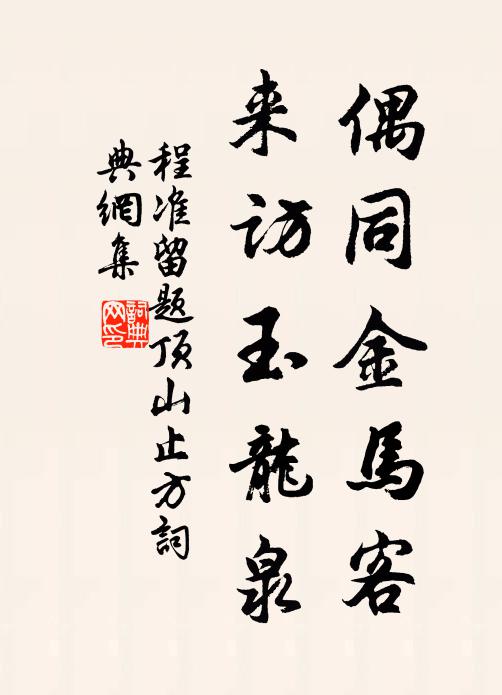 偶同金馬客
来访玉龍泉
程准留题顶山止方詞
典網集
詞典
网印